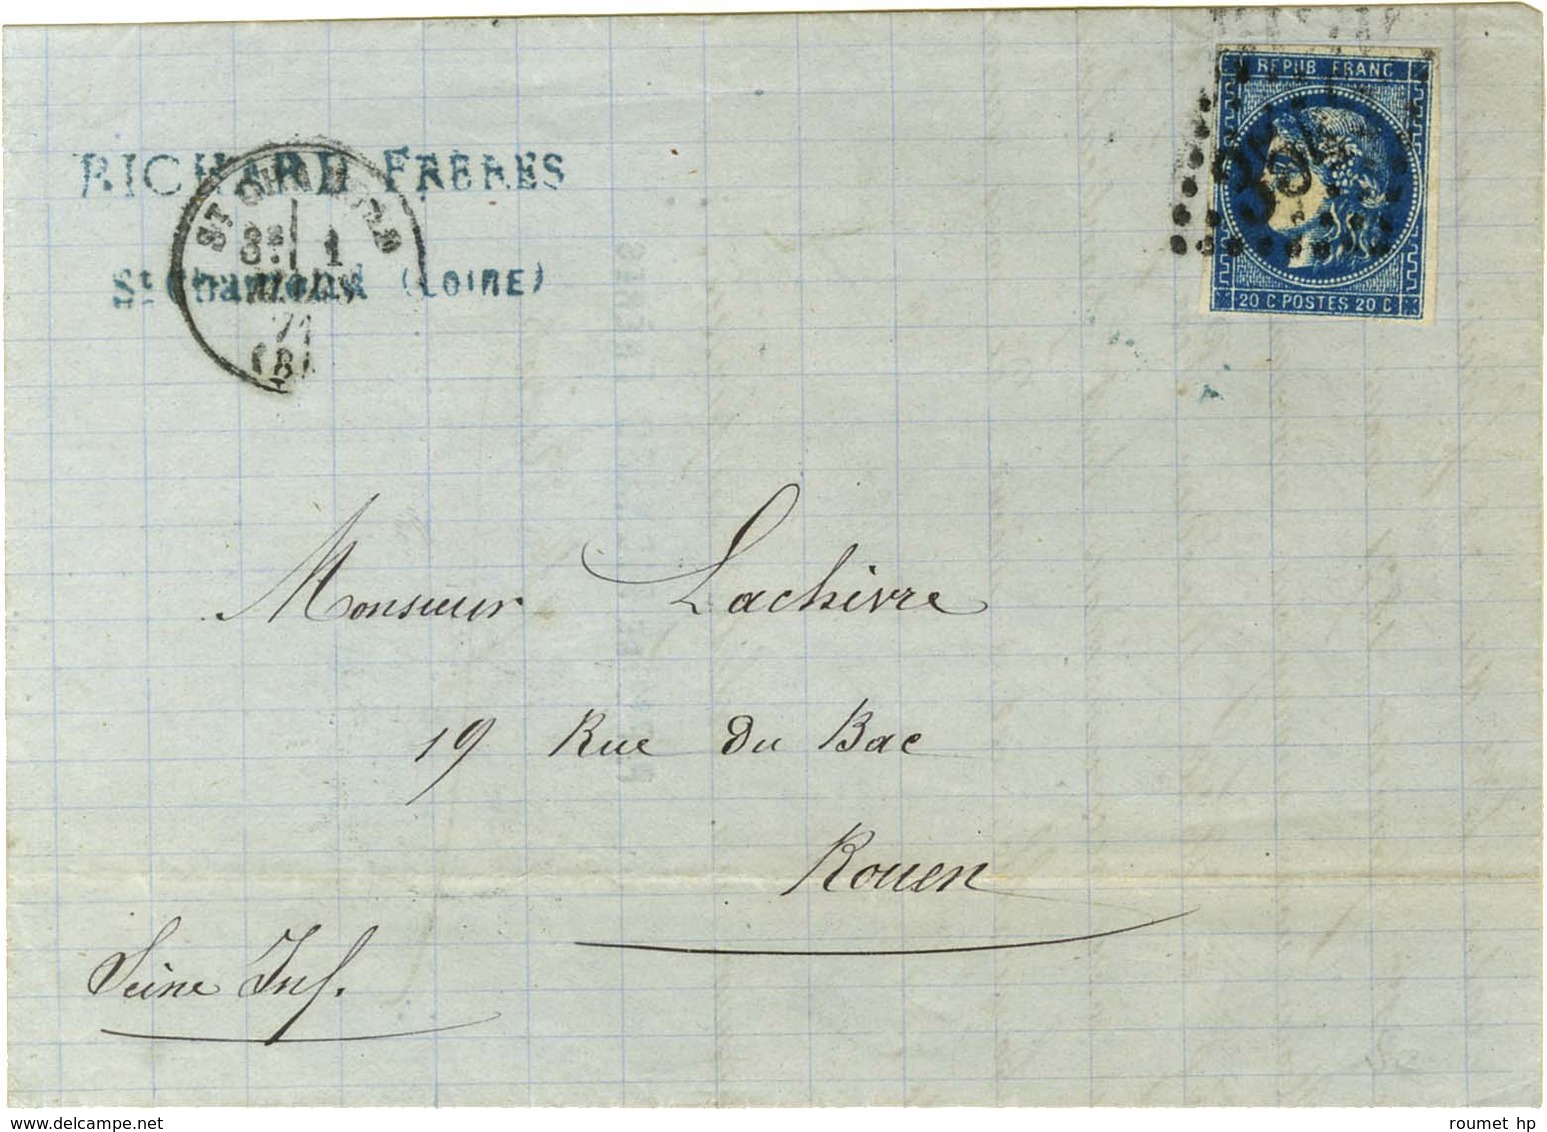 REPUB FRANC
20 C POSTES 20 C
RICHARD FRERES
St Chamond (LOIRE)
ST
3E 1
71
Monsieur Lachivre
19 Rue du Bac
Rouen
Seine Inf.
www.delcampe.net
roumet hp